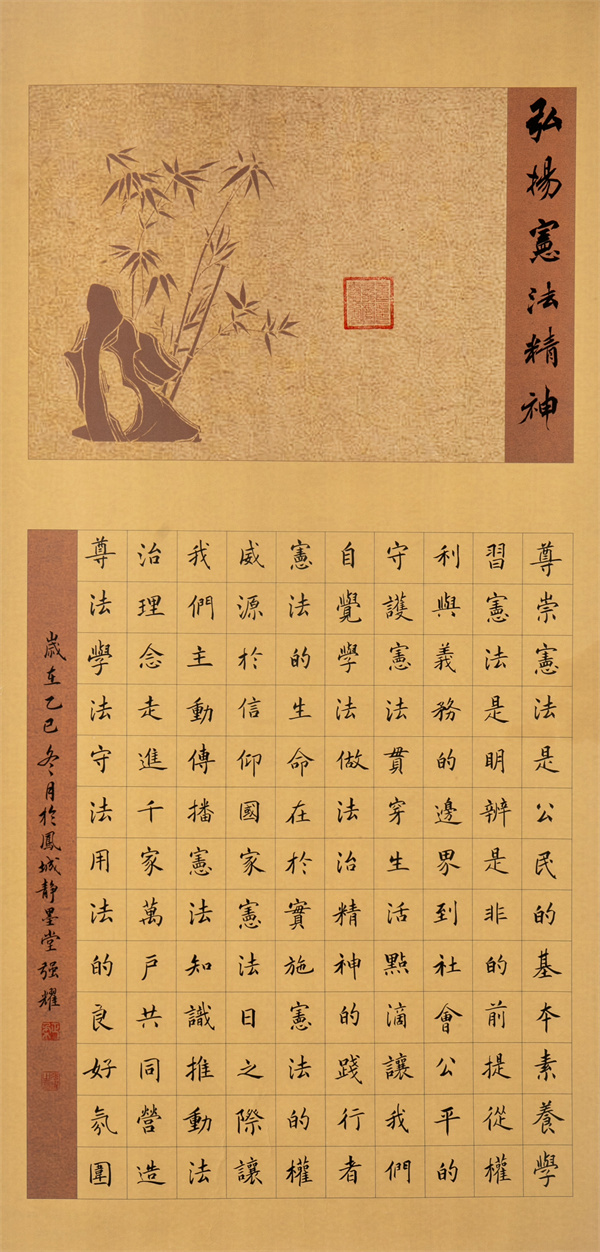 弘揚憲法精神
尊崇憲法是公民的基本素養學
習憲法是明辨是非的前提從權
利與義務的邊界到社會公平的
守護憲法貫穿生活點滴讓我們
自覺學法做法治精神的踐行者
憲法的生命在於實施憲法的權
威源於信仰國家憲法日之際讓
我們主動傳播憲法知識推動法
治理念走進千家萬戶共同營造
尊法學法守法用法的良好氛圍
歲在乙巳冬月於鳳城靜墨堂强耀